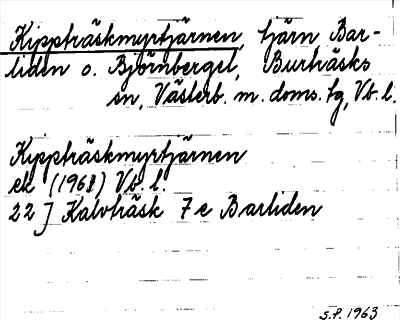 Kippträskmyrtjärnen, tjärn Bar-
liden o. Björnberget, Burträsks
sn, Västerb. m. doms. tg, Vb. l.
Kippträskmyrtjärnen
ek (1961) Vb. l.
22 J Kalvträsk 7 e Barliden
S.P. 1963